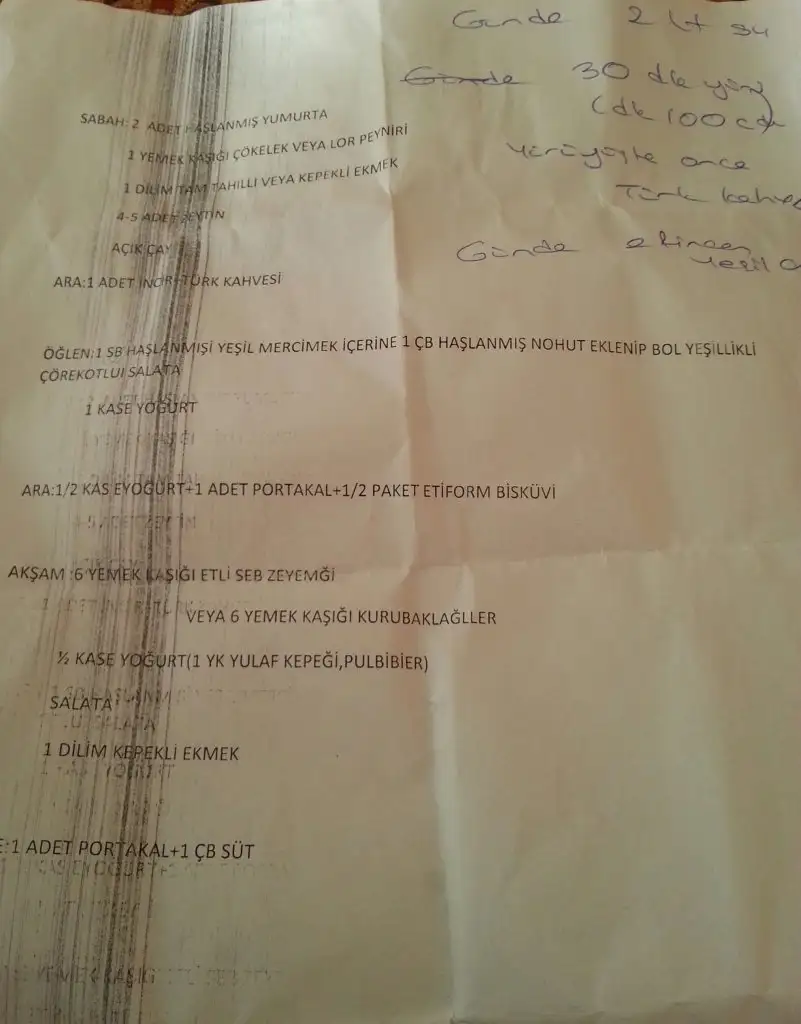 Günde 2 lt su
Günde 30 dk yürü
(dk 100 
Yürüyüşte önce
Türk kahves
Günde
yeşil
SABAH: 2 ADET HAŞLANMIŞ YUMURTA
1 YEMEK KAŞIĞI ÇÖKELEK VEYA LOR PEYNİRİ
1 DİLİM TAM TAHILLI VEYA KEPEKLİ EKMEK
4-5 ADET ZEYTİN
AÇIK ÇAY
ARA:1 ADET İNCİR+TÜRK KAHVESİ
ÖĞLEN:1 SB HAŞLANMIŞI YEŞİL MERCİMEK İÇERİNE 1 ÇB HAŞLANMIŞ NOHUT EKLENİP BOL YEŞİLLİKLİ
ÇÖREKOTLUI SALATA
1 KASE YOĞURT
ARA:1/2 KAS EYOĞURT+1 ADET PORTAKAL+1/2 PAKET ETİFORM BİSKÜVİ
AKŞAM :6 YEMEK KAŞIĞI ETLİ SEB ZEYEMĞİ
VEYA 6 YEMEK KAŞIĞI KURUBAKLAĞLLER
½ KASE YOĞURT(1 YK YULAF KEPEĞİ,PULBİBİER)
SALATA
1 DİLİM KEPEKLİ EKMEK
E:1 ADET PORTAKAL+1 ÇB SÜT